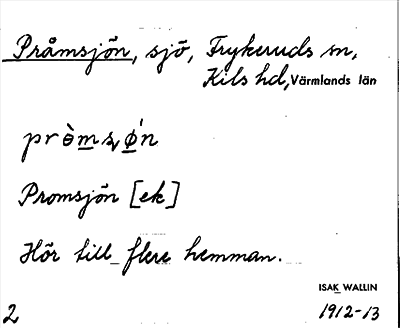 Pråmsjön, sjö, Frykeruds sn,
Kils hd, Värmlands län
Promsjön [ek]
Hör till flere hemman.
ISAK WALLIN
2 1912-13